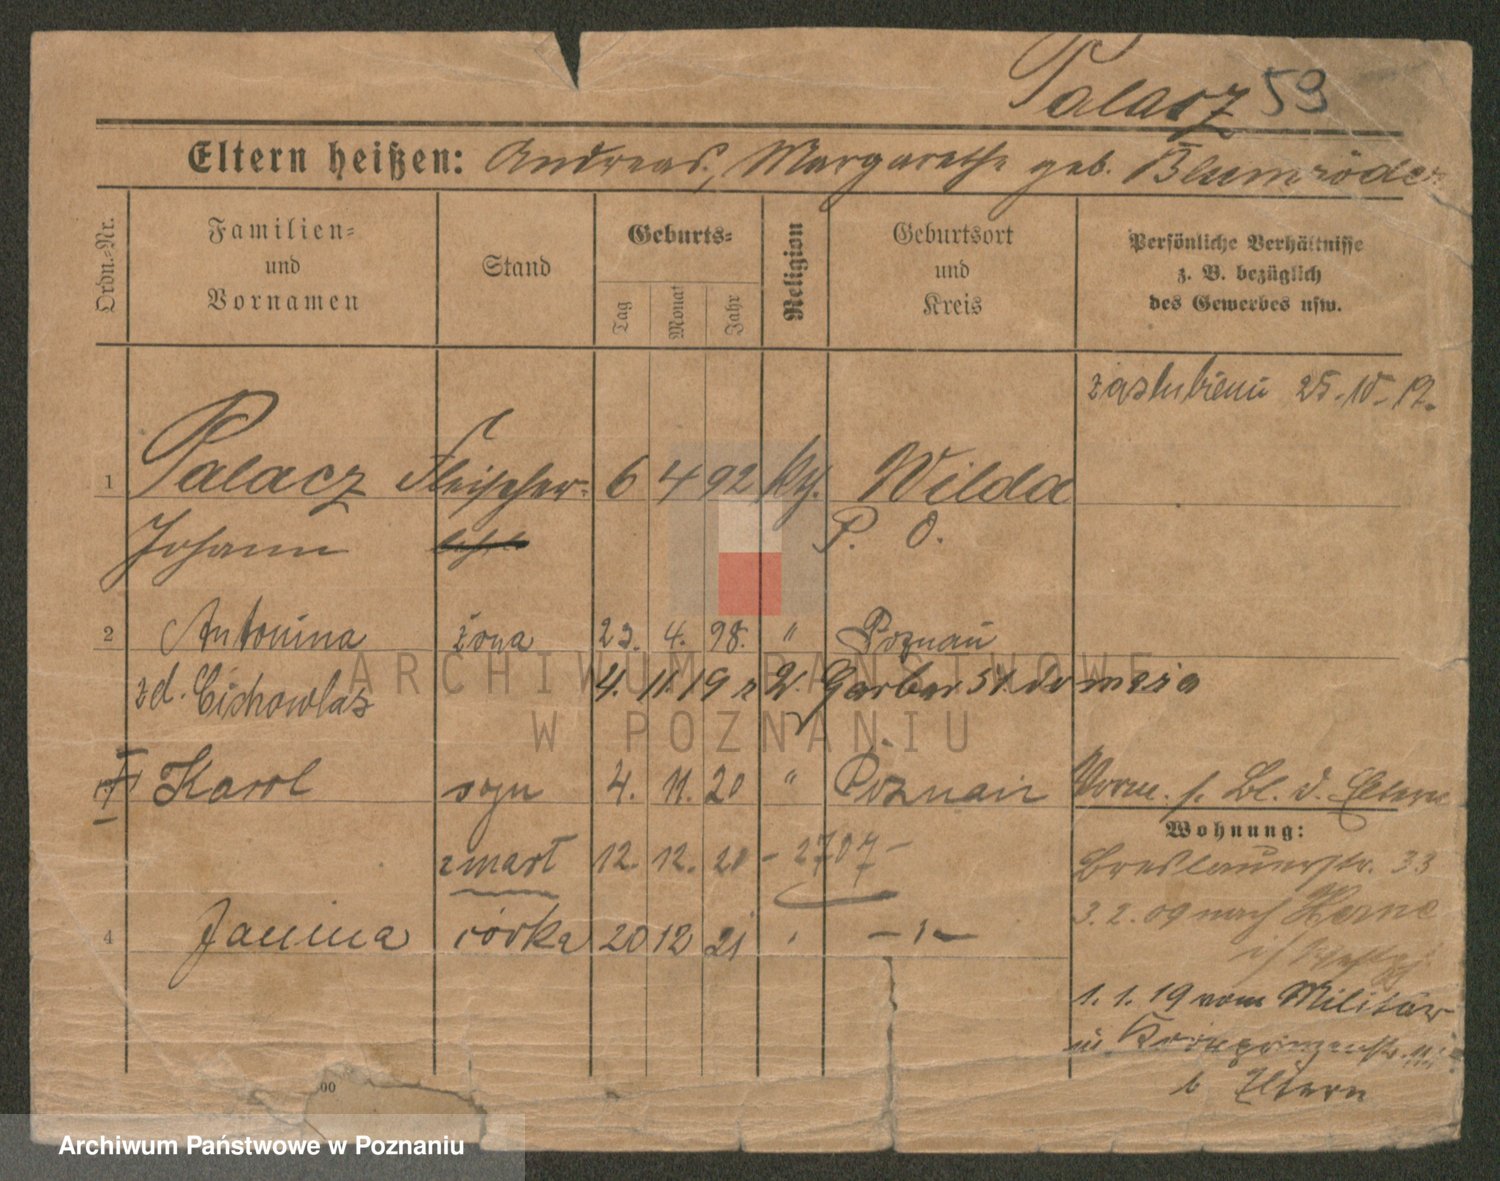 Palacz 59
Eltern heißen: Andreas, Margarethe geb. Blumröder
Ordn.-Nr.
Familien-
und
Vornamen
Stand
Geburts-
Tag
Monat
Jahr
Religion
Geburtsort
und
Kreis
Persönliche Verhältnisse
z. B. bezüglich
des Gewerbes usw.
zaslubieni 25.10.19.
1 Palacz Fleischer- 6 4 92 kth. Wilda
Johann P. O.
2 Antonina żona 23. 4. 98. " Poznań
zd. Cichowlas 4. 11. 19 z W. Garbar 54 do męża
Karol syn 4. 11. 20 " Poznań Vorm. s. Bl. d. Eltern
Wohnung:
zmarł 12. 12. 20 - 2707 - Breslauerstr. 33
3.2.09 nach Herne
4 Janina córka 20 12 21 " -"-
i/Westf.
1. 1. 19 vom Militär
in Kronprinzenstr.
b Eltern
00
ARCHIWUM PAŃSTWOWE
W POZNANIU
Archiwum Państwowe w Poznaniu